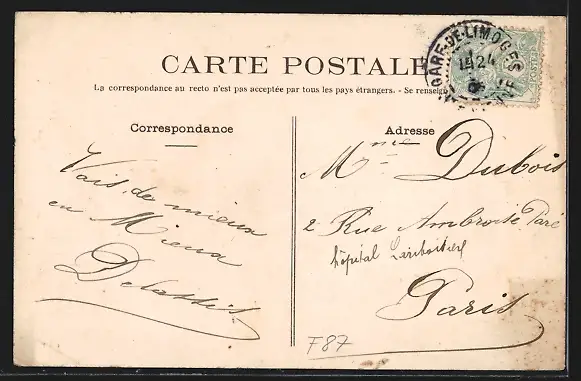 CARTE POSTALE
La correspondance au recto n'est pas acceptée par tous les pays étrangers. - Se renseign
GARE-DE-LIMOGES
24
POSTES
Correspondance
Adresse
Vais de mieux
en Mieux
Mme Dubois
2 Rue Ambroise Paré
hôpital Lariboisière
Paris
F87